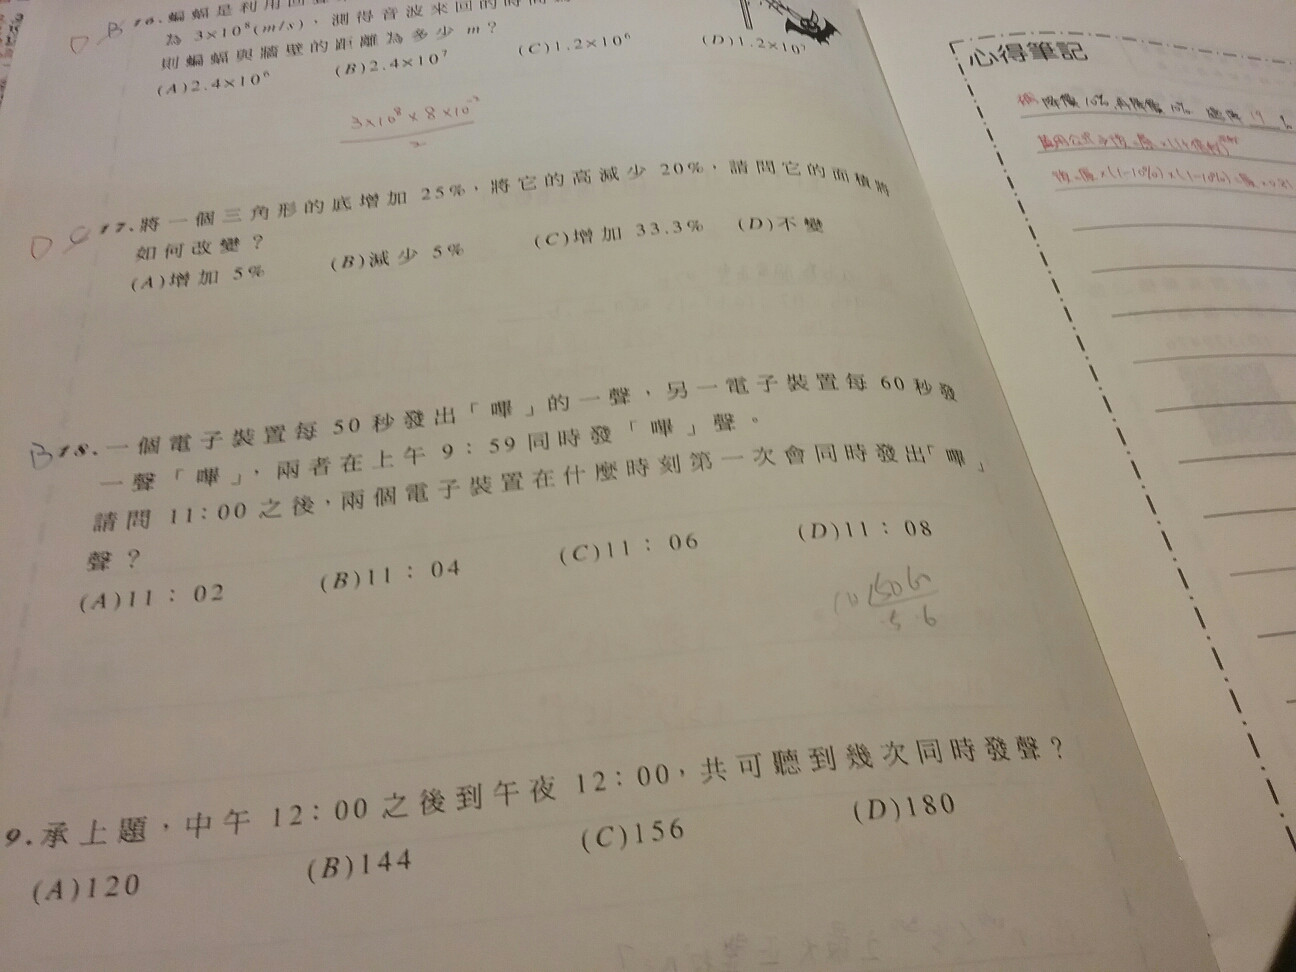 16.蝙蝠是利用回
為 3×10⁸(m/s)，測得音波來回的時間
則蝙蝠與牆壁的距離為多少 m？
(A)2.4×10⁶ (B)2.4×10⁷ (C)1.2×10⁶ (D)1.2×10⁷
3×10⁸×8×10⁻²
2
D C 17.將一個三角形的底增加 25%，將它的高減少 20%，請問它的面積將
如何改變？
(A)增加 5% (B)減少 5% (C)增加 33.3% (D)不變
B 18.一個電子裝置每 50 秒發出「嗶」的一聲，另一電子裝置每 60 秒發
一聲「嗶」，兩者在上午 9：59 同時發「嗶」聲。
請問 11：00 之後，兩個電子裝置在什麼時刻第一次會同時發出「嗶」
聲？
(A)11：02 (B)11：04 (C)11：06 (D)11：08
10 50 60
5 6
9.承上題，中午 12：00 之後到午夜 12：00，共可聽到幾次同時發聲？
(A)120 (B)144 (C)156 (D)180
心得筆記
10% 10% 19
×(1-10%)×(1-10%)